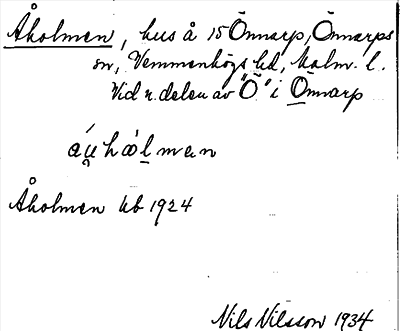 Åholmen, hus å 15 Önnarp, Önnarps
sn, Vemmenhögs hd, Malm. l.
Vid n. delen av "Ö" i Önnarp
áu̯ hòlman
Åholmen kb 1924
Nils Nilsson 1934